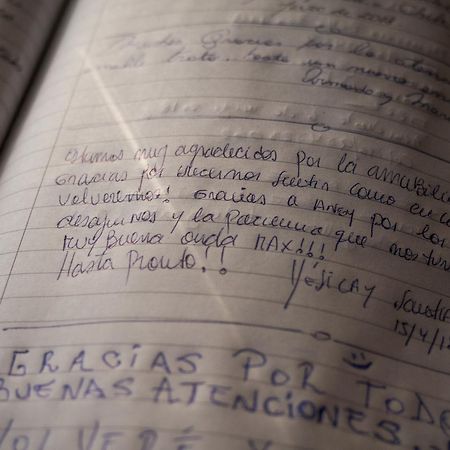 de 2018
Muchas Gracias por la aten
mable trato. Hasta un nuevo en
Armando y
Estamos muy agradecidos por la amabili
Gracias por hacernos sentir como en ca
Volveremos! Gracias a Anty por los
desayunos y la paciencia que nos tuv
Muy buena onda MAX!!!
Hasta Pronto!!
Yésica y
15/4/1
GRACIAS POR TODO
BUENAS ATENCIONES.
VOLVERÉ Y